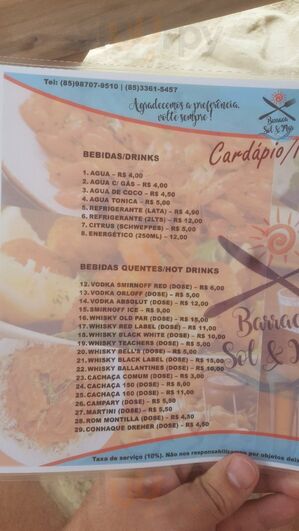 Tel: (85)98707-9510 | (85)3361-5457
Agradecemos a preferência,
volte sempre!
Barraca
Sol & Mar
Cardápio/
BEBIDAS/DRINKS
1. AGUA – R$ 4,00
2. AGUA C/ GÁS – R$ 4,00
3. AGUA DE COCO – R$ 4,50
4. AGUA TONICA – R$ 5,00
5. REFRIGERANTE (LATA) – R$ 4,90
6. REFRIGERANTE (2LTS) – R$ 12,00
7. CITRUS (SCHWEPPES) – R$ 5,00
8. ENERGÉTICO (250ML) – 12,00
BEBIDAS QUENTES/HOT DRINKS
12. VODKA SMIRNOFF RED (DOSE) – R$ 6,00
13. VODKA ORLOFF (DOSE) – R$ 5,00
14. VODKA ABSOLUT (DOSE) – R$ 12,00
15. SMIRNOFF ICE – R$ 9,00
16. WHISKY OLD PAR (DOSE) – R$ 15,00
17. WHISKY RED LABEL (DOSE) – R$ 11,00
18. WHISKY BLACK WHITE (DOSE) – R$ 10,00
19. WHISKY TEACHERS (DOSE) – R$ 5,00
20. WHISKY BELL'S (DOSE) – R$ 5,00
21. WHISKY BLACK LABEL (DOSE) – R$ 15,00
22. WHISKY BALLANTINES (DOSE) – R$ 10,00
23. CACHAÇA COMUM (DOSE) – R$ 3,00
24. CACHAÇA 150 (DOSE) – R$ 6,00
25. CACHAÇA 160 (DOSE) – R$ 11,00
26. CAMPARY (DOSE) – R$ 5,50
27. MARTINI (DOSE) – R$ 5,50
28. ROM MONTILLA (DOSE) – R$ 4,50
29. CONHAQUE DREHER (DOSE) – R$ 4,50
Barraca
Sol &
Taxa de serviço (10%). Não nos responsabilizamos por objetos